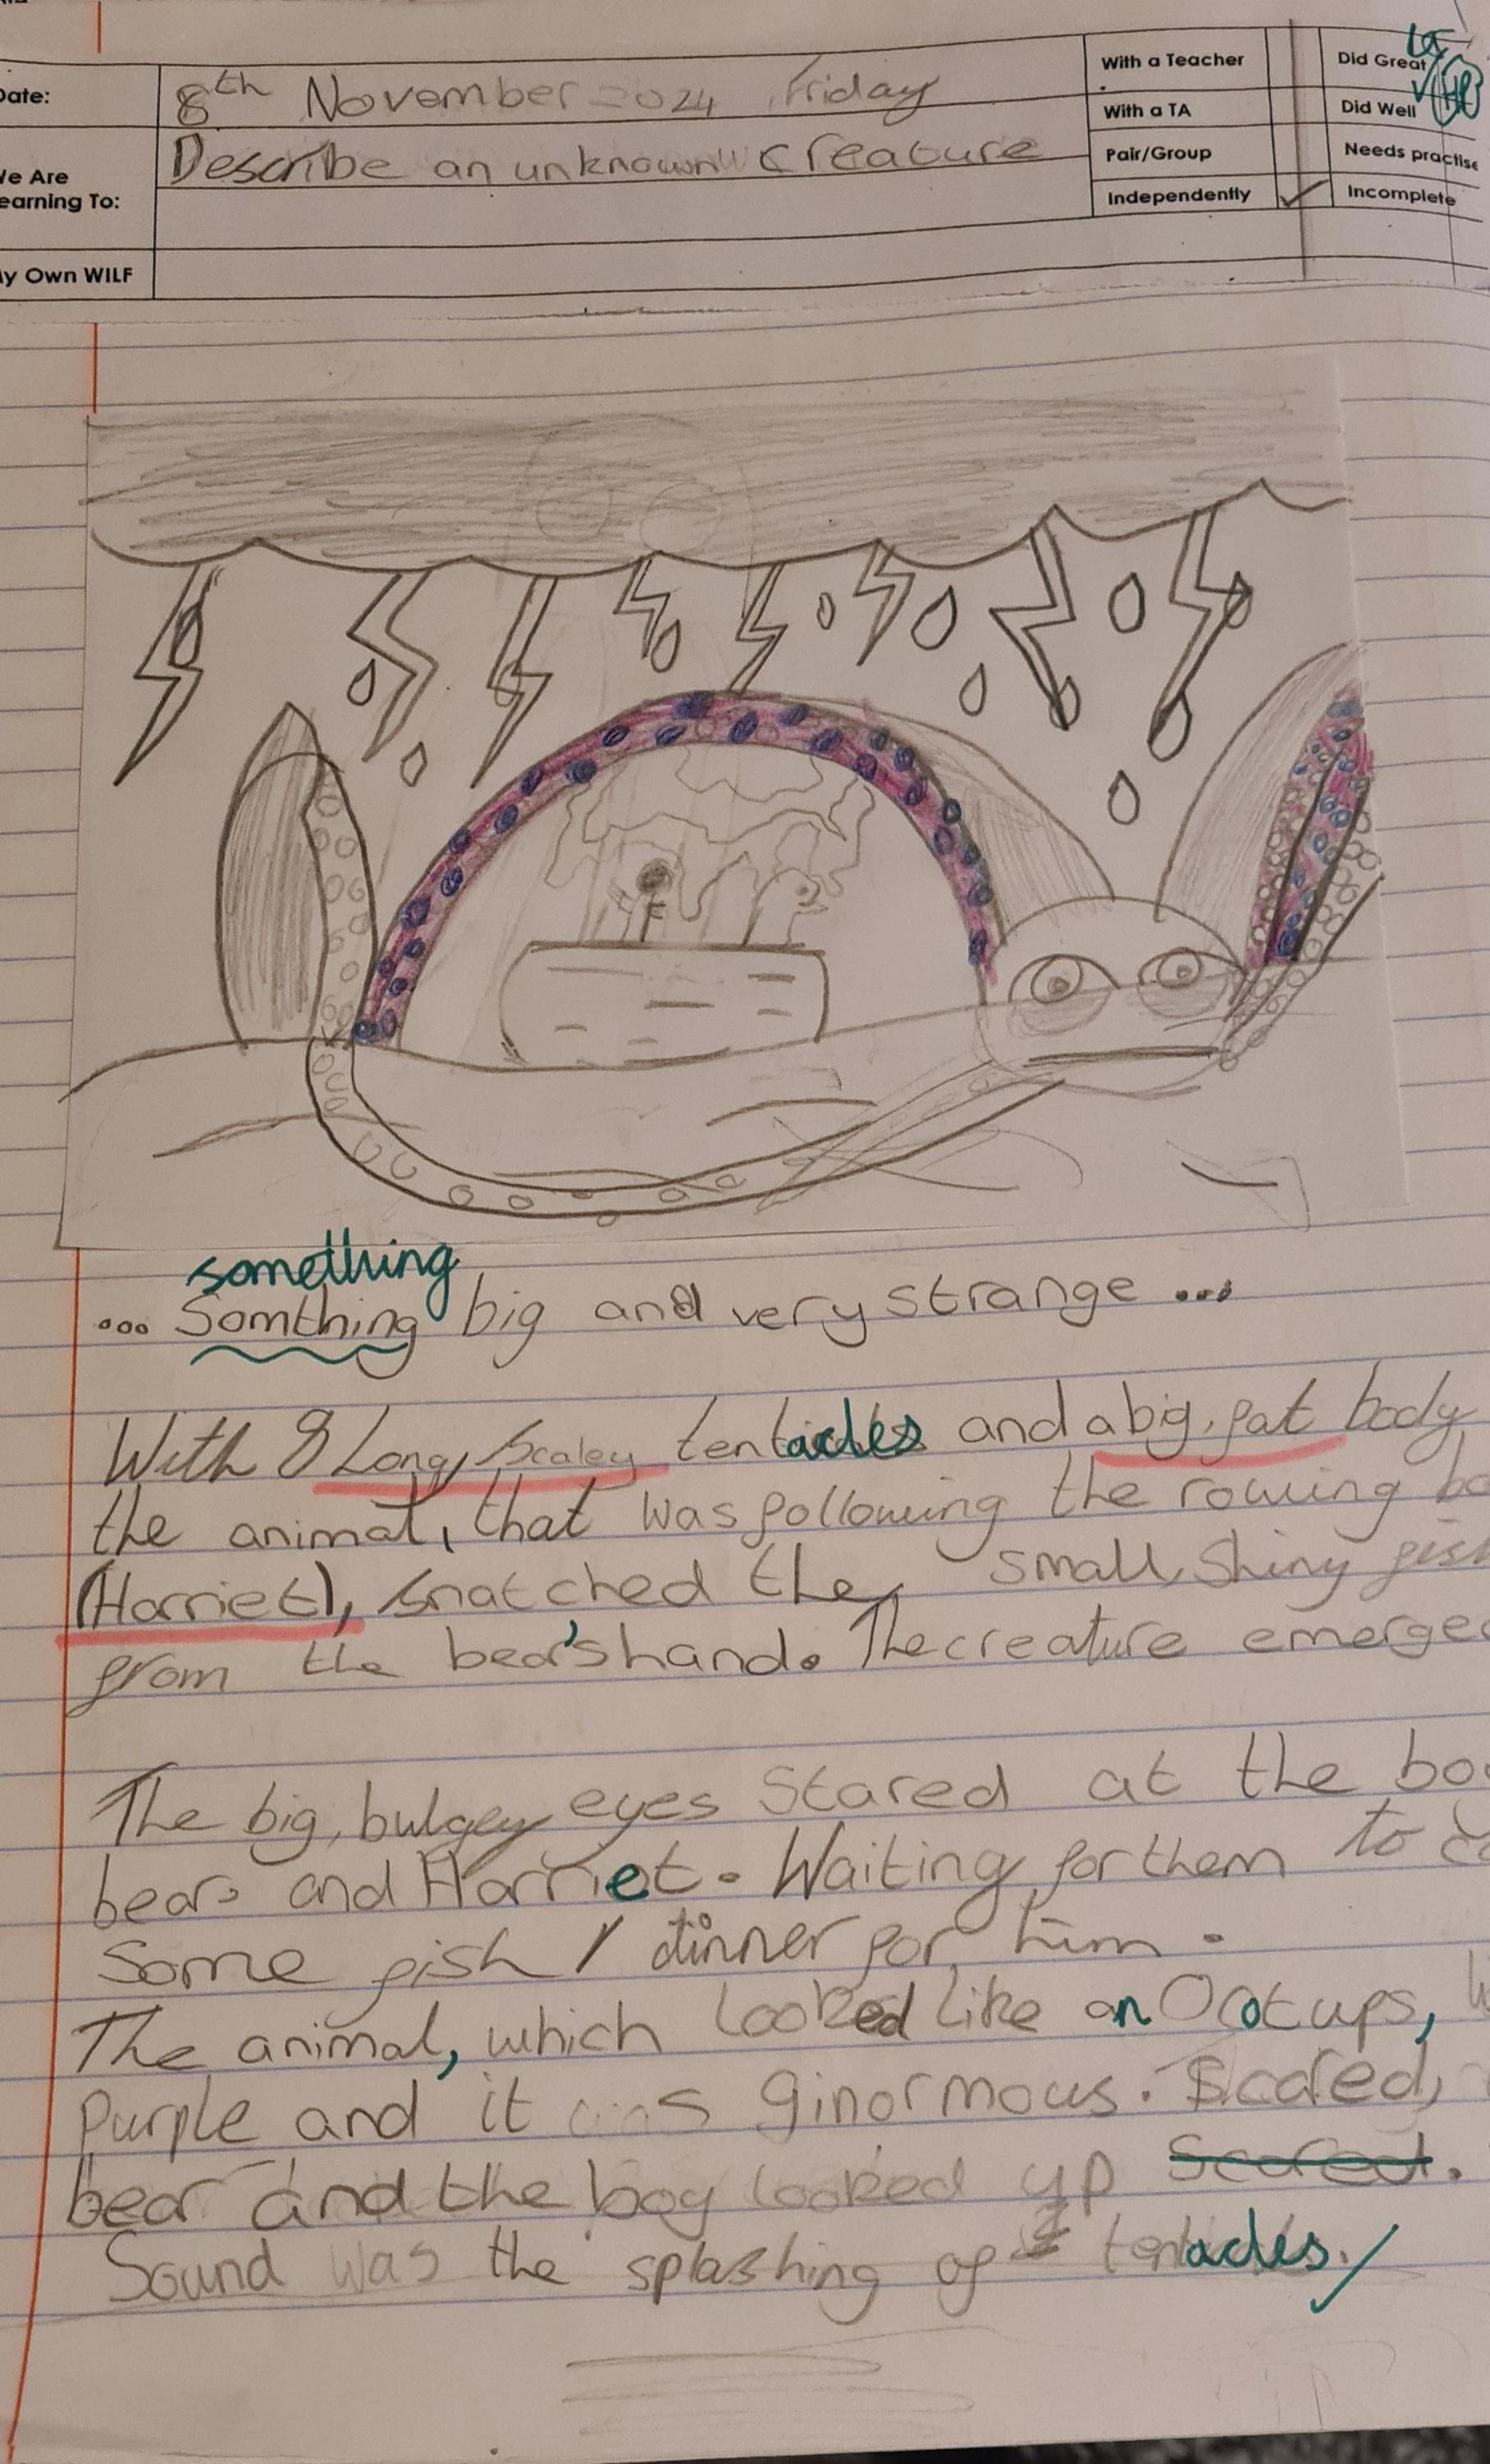 Date:
8th November 2024 Friday
We Are
Learning To:
Describe an unknown creature
My Own WILF
With a Teacher
With a TA
Pair/Group
Independently ✓
Did Great
Did Well
Needs practise
Incomplete
something
... Somthing big and very strange ...
With 8 Long, scaley tentacles and a big, fat body
the animal, that was following the rowing
(Harriet), snatched the small, shiny fish
from the bear's hand. The creature emerged
The big, bulgey eyes stared at the
bear and Harriet. Waiting for them to
some fish / dinner for him.
The animal, which looked like an Ocotups,
purple and it was ginormous. Scared,
bear and the boy looked up Scared.
Sound was the splashing of tentacles.